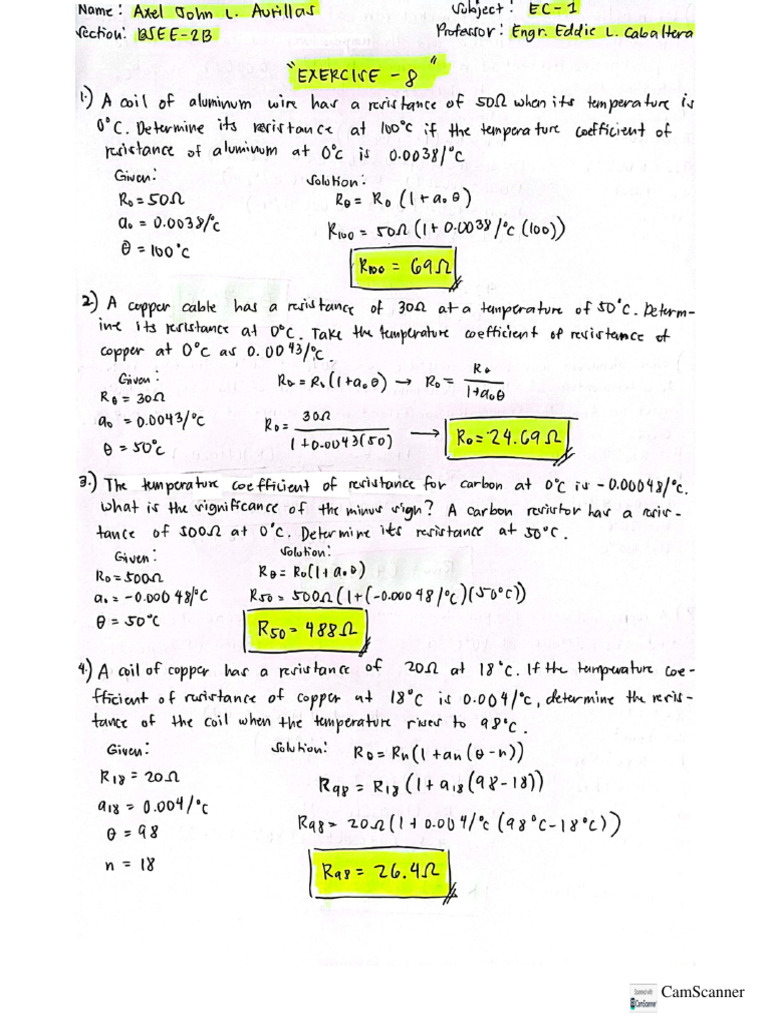 Name: Axel John L. Aurillas
Subject: EC-1
Section: BSEE-2B
Professor: Engr. Eddie L. Cabaltera
"EXERCISE - 8"
1.) A coil of aluminum wire has a resistance of 50Ω when its temperature is
0°C. Determine its resistance at 100°C if the temperature coefficient of
resistance of aluminum at 0°C is 0.0038/°C
Given:
Solution:
R₀ = 50Ω
Rθ = R₀ (1 + a₀ θ)
a₀ = 0.0038/°C
R100 = 50Ω (1 + 0.0038/°C (100))
θ = 100°C
R100 = 69Ω
2) A copper cable has a resistance of 30Ω at a temperature of 50°C. Determ-
ine its resistance at 0°C. Take the temperature coefficient of resistance of
copper at 0°C as 0.0043/°C.
Given:
Rθ = R₀ (1 + a₀ θ) → R₀ = Rθ / 1 + a₀θ
Rθ = 30Ω
a₀ = 0.0043/°C
R₀ = 30Ω / 1 + 0.0043(50) → R₀ = 24.69Ω
θ = 50°C
3.) The temperature coefficient of resistance for carbon at 0°C is -0.00048/°C.
What is the significance of the minus sign? A carbon resistor has a resis-
tance of 500Ω at 0°C. Determine its resistance at 50°C.
Given:
Solution:
R₀ = 500Ω
Rθ = R₀(1 + a₀ θ)
a₀ = -0.00048/°C
R50 = 500Ω (1 + (-0.00048/°C)(50°C))
θ = 50°C
R50 = 488Ω
4.) A coil of copper has a resistance of 20Ω at 18°C. If the temperature coe-
fficient of resistance of copper at 18°C is 0.004/°C, determine the resis-
tance of the coil when the temperature rises to 98°C.
Given:
Solution: Rθ = Rn(1 + an(θ - n))
R18 = 20Ω
R98 = R18 (1 + a18 (98 - 18))
a18 = 0.004/°C
R98 = 20Ω (1 + 0.004/°C (98°C - 18°C))
θ = 98
n = 18
R98 = 26.4Ω
Scanned with
CamScanner
CamScanner